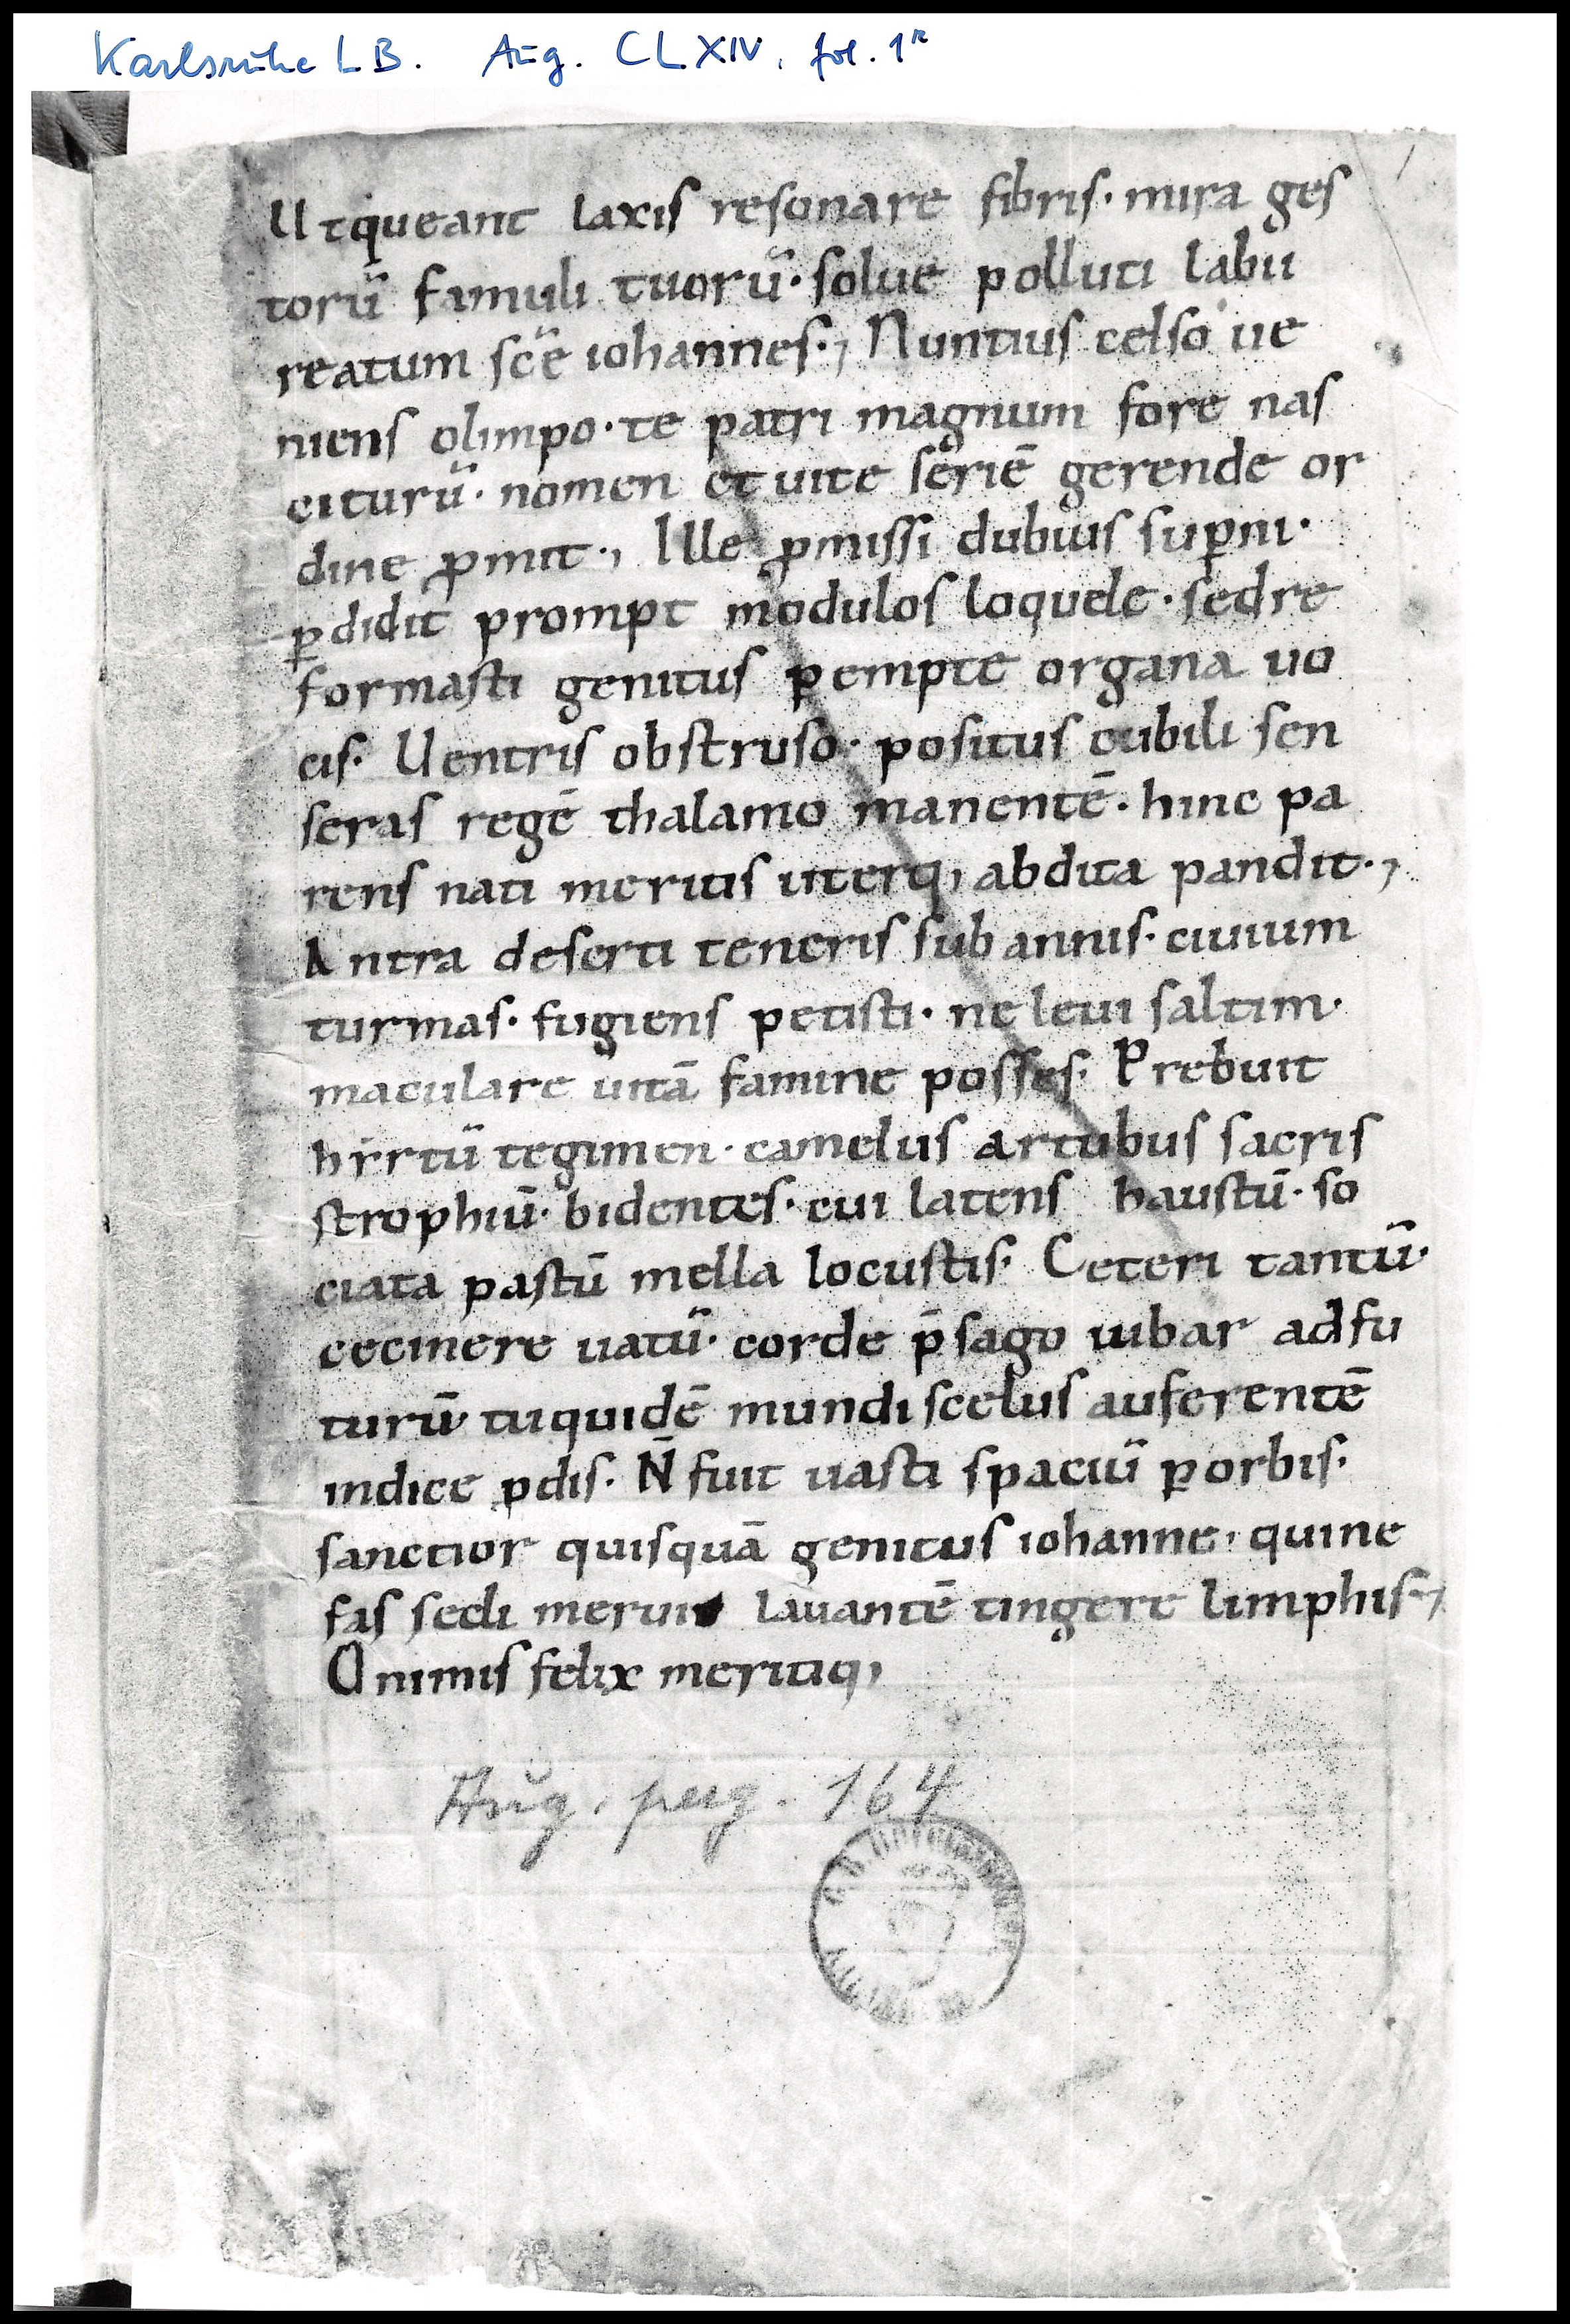 Karlsruhe LB. Aug. CLXIV, fol. 1r
Utqueant laxis resonare fibris· mira ges
torū famuli tuorū· solue polluti labii
reatum sc̄e iohannes·, Nuntius celso ue
niens olimpo· te patri magnum fore nas
citurū· nomen et uite seriē gerende or
dine ꝓmit·, Ille ꝓmissi dubius suꝑni·
ꝑdidit prompt modulos loquele· sedre
formasti genitus ꝑempte organa uo
cis· Uentris obstruso· positus cubili sen
seras regē thalamo manentē· hinc pa
rens nati meritis uterq, abdita pandit·,
Antra deserti teneris sub annis· ciuium
turmas· fugiens petisti· ne leui saltim·
maculare uitā famine posses· Prebuit
hirtū tegimen· camelus artubus sacris
strophiū· bidentes· cui latens haustū· so
ciata pastū mella locustis· Ceteri tantū·
cecinere uatū· corde p̄sago iubar adfu
turū tuquidē mundi scelus auferentē
indice ꝓdis· N̄ fuit uasti spaciū ꝑ orbis·
sanctior quisquā genitus iohanne· quine
fas secli meruit lauantē tingere limphis·,
O nimis felix meritiq,
Aug. perg. 164